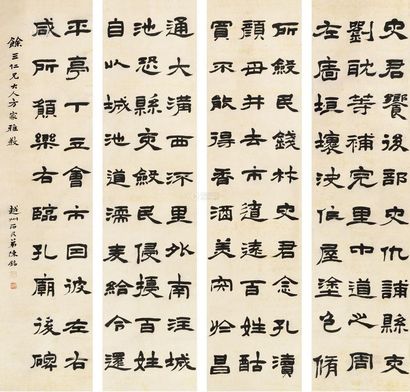 史君饗後部史仇誧縣吏
劉耽等補完里中道之周
左廧垣壞決作屋塗色脩
所斂民錢材史君念孔瀆
顏母井去市遼遠百姓酤
買不能得香酒美肉於昌
通大溝西流里外南注城
池恐縣吏斂民侵擾百姓
自以城池道濡麥給令還
平亭下立會市因彼左右
咸所願樂右臨孔廟後碑
餘三仁兄大人方家雅教
越州石弟陳銘